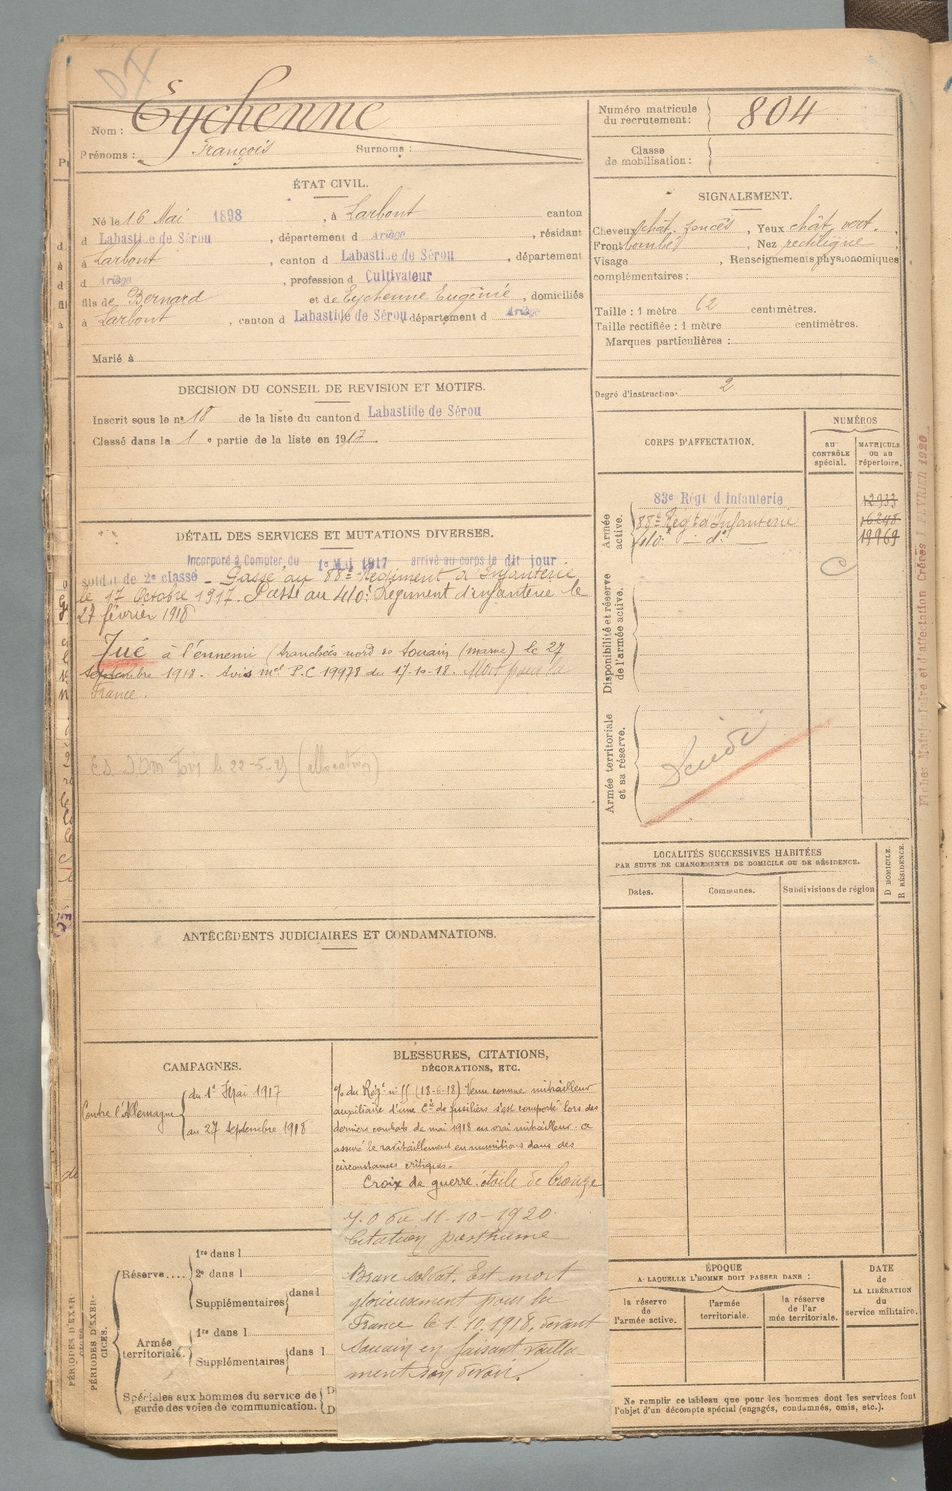 Nom : Eychenne
Prénoms : François Surnoms :
Numéro matricule
du recrutement : 804
Classe
de mobilisation :
ÉTAT CIVIL.
Né le 16 Mai 1898, à Larbont canton
d Labastide de Sérou, département d Ariège, résidant
à Larbont, canton d Labastide de Sérou, département
d Ariège, profession d Cultivateur
fils de Bernard et de Eychenne Eugénie, domiciliés
à Larbont, canton d Labastide de Sérou, département d Ariège
Marié à
SIGNALEMENT.
Cheveux chât. foncés, Yeux chât. vert.,
Front bombé, Nez rectiligne
Visage , Renseignements physionomiques
complémentaires :
Taille : 1 mètre 62 centimètres.
Taille rectifiée : 1 mètre centimètres.
Marques particulières :
Degré d'instruction : 2
DECISION DU CONSEIL DE REVISION ET MOTIFS.
Inscrit sous le n° 18 de la liste du canton d Labastide de Sérou
Classé dans la 1 e partie de la liste en 1917.
CORPS D'AFFECTATION.
NUMÉROS
AU
CONTRÔLE
spécial.
MATRICULE
OU AU
répertoire.
Armée
active.
83e Régt d'Infanterie 12933
88e Régt d'Infanterie 16248
410e - d° - 19969
Disponibilité et réserve
de l'armée active.
Armée territoriale
et sa réserve.
DÉTAIL DES SERVICES ET MUTATIONS DIVERSES.
Incorporé à Compter du 1er Mai 1917 arrivé au corps le dit jour
soldat de 2e classe - Passé au 88e Régiment d'Infanterie
le 17 Octobre 1917. Passé au 410e Régiment d'infanterie le
27 février 1918
Tué à l'ennemi (tranchées nord de Souain (marne) le 27
Septembre 1918. Avis mel P.C 19978 du 17-10-18. Mort pour la
France.
le 22-5-29 (allocation)
LOCALITÉS SUCCESSIVES HABITÉES
PAR SUITE DE CHANGEMENTS DE DOMICILE OU DE RÉSIDENCE.
Dates. Communes. Subdivisions de région
D DOMICILE.
R RÉSIDENCE.
ANTÉCÉDENTS JUDICIAIRES ET CONDAMNATIONS.
CAMPAGNES.
Contre l'Allemagne
du 1er Mai 1917
au 27 Septembre 1918
BLESSURES, CITATIONS,
DÉCORATIONS, ETC.
du Régt n° (18-6-18) Venu comme mitrailleur
auxiliaire d'une Cie de fusiliers s'est comporté lors des
derniers combats de mai 1918 en vrai mitrailleur. a
assuré le ravitaillement en munitions dans des
circonstances critiques.
Croix de guerre. étoile de bronze
J.O du 11-10-1920.
Citation posthume
Brave soldat. Est mort
glorieusement pour la
France le 1.10.1918, devant
Souain en faisant vailla
ment son devoir.
PÉRIODES D'EXER-
CICES.
Réserve....
1re dans l
2e dans l
Supplémentaires dans l
Armée
territoriale.
1re dans l
Supplémentaires dans l
Spéciales aux hommes du service de
garde des voies de communication.
D
D
ÉPOQUE
A LAQUELLE L'HOMME DOIT PASSER DANS :
la réserve
de l'armée active.
l'armée
territoriale.
la réserve
de l'ar
mée territoriale.
DATE
de
LA LIBÉRATION
du
service militaire.
Ne remplir ce tableau que pour les hommes dont les services font
l'objet d'un décompte spécial (engagés, condamnés, omis, etc.).